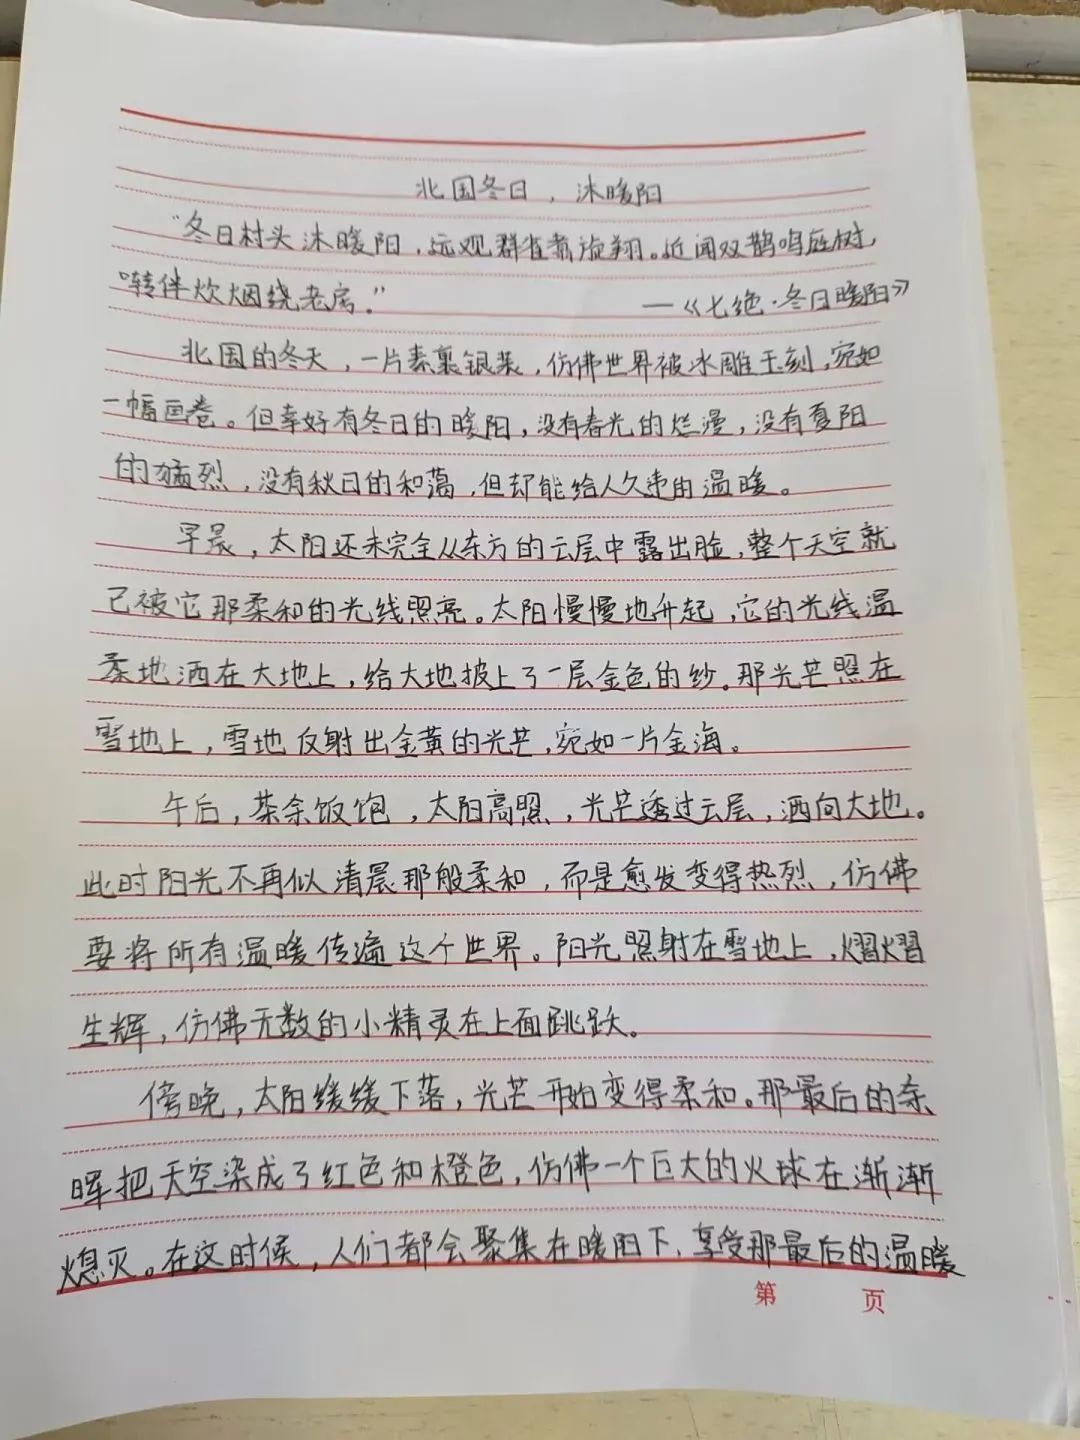 北国冬日，沐暖阳
“冬日村头沐暖阳，远观群雀翥旋翔。近闻双鹊鸣庭树，
啭伴炊烟绕老房。” —《七绝·冬日暖阳》
北国的冬天，一片素裹银装，仿佛世界被冰雕玉刻，宛如
一幅画卷。但幸好有冬日的暖阳，没有春光的烂漫，没有夏阳
的猛烈，没有秋日的和蔼，但却能给人久违的温暖。
早晨，太阳还未完全从东方的云层中露出脸，整个天空就
已被它那柔和的光线照亮。太阳慢慢地升起，它的光线温
柔地洒在大地上，给大地披上了一层金色的纱。那光芒照在
雪地上，雪地反射出金黄的光芒，宛如一片金海。
午后，茶余饭饱，太阳高照，光芒透过云层，洒向大地。
此时阳光不再似清晨那般柔和，而是愈发变得热烈，仿佛
要将所有温暖传遍这个世界。阳光照射在雪地上，熠熠
生辉，仿佛无数的小精灵在上面跳跃。
傍晚，太阳缓缓下落，光芒开始变得柔和。那最后的余
晖把天空染成了红色和橙色，仿佛一个巨大的火球在渐渐
熄灭。在这时候，人们都会聚集在暖阳下，享受那最后的温暖
第 页